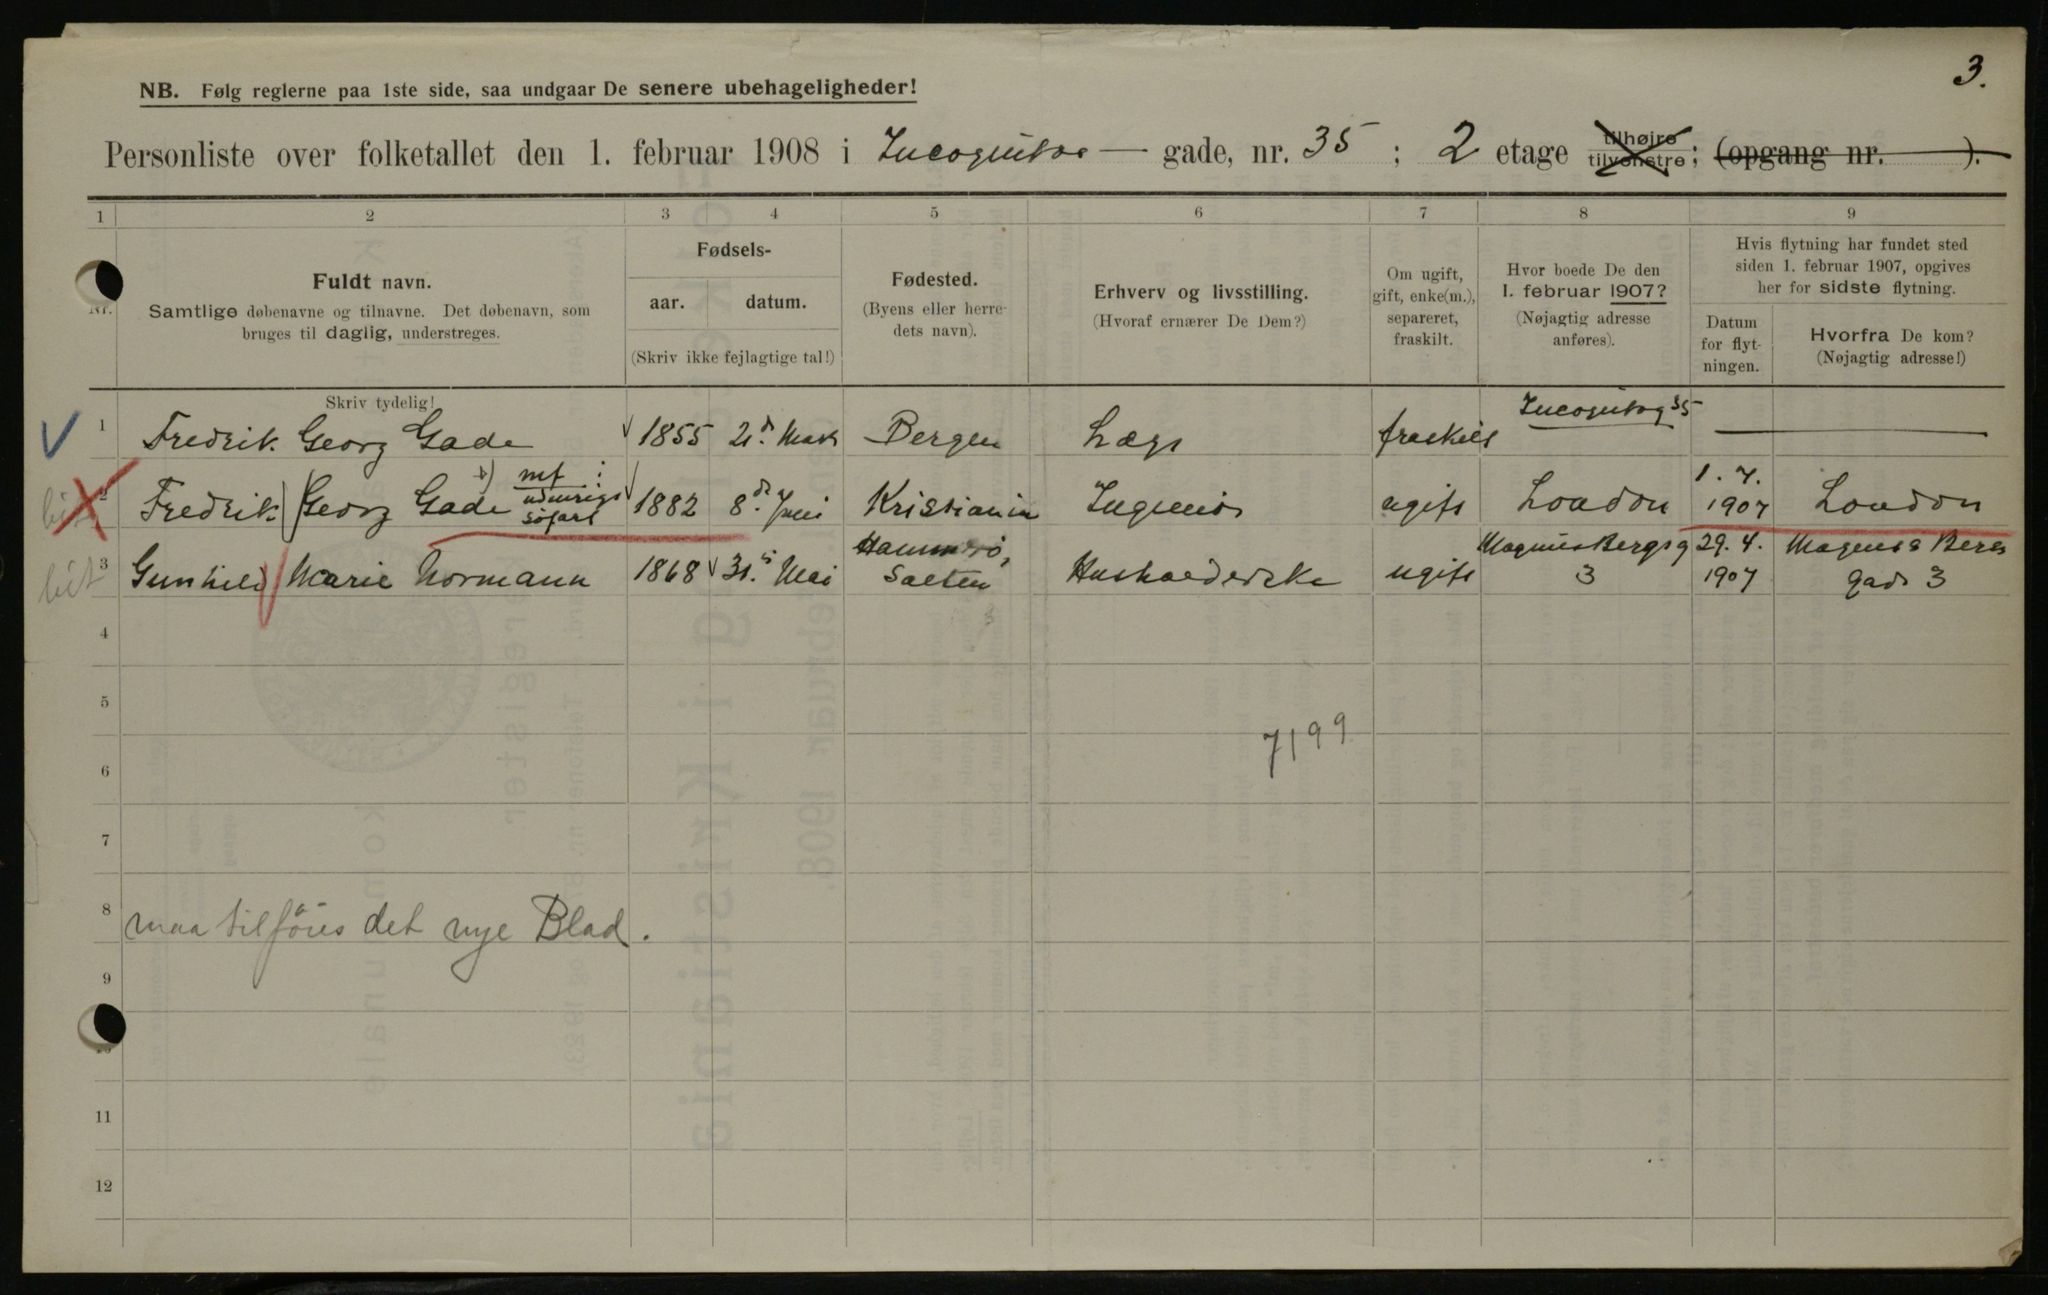 3.
NB. Følg reglerne paa 1ste side, saa undgaar De senere ubehageligheder!
Personliste over folketallet den 1. februar 1908 i Incognitos — gade, nr. 35 ; 2 etage tilhøjre tilvenstre ; (opgang nr. ).
1 2 3 4 5 6 7 8 9
Nr.
Fuldt navn.
Samtlige døbenavne og tilnavne. Det døbenavn, som
bruges til daglig, understreges.
Fødsels-
aar. datum.
(Skriv ikke fejlagtige tal!)
Fødested.
(Byens eller herre-
dets navn).
Erhverv og livsstilling.
(Hvoraf ernærer De Dem?)
Om ugift,
gift, enke(m.),
separeret,
fraskilt.
Hvor boede De den
1. februar 1907?
(Nøjagtig adresse
anføres).
Hvis flytning har fundet sted
siden 1. februar 1907, opgives
her for sidste flytning.
Datum
for flyt-
ningen.
Hvorfra De kom?
(Nøjagtig adresse!)
Skriv tydelig!
1 Fredrik Georg Gade 1855 21d. Mars Bergen Læge fraskilt Incognitog 35
2 Fredrik Georg Gade 1882 8d. Juni Kristiania Ingeniør ugift London 1.7. 1907 London
mf
udenrigs
søfart
3 Gunhild Marie Normann 1868 31. Mai Hammerø, Salten Husholderske ugift Magnus Bergsg 3 29.4. 1907 Magnus Bergs Gade 3
4
5
7199
6
7
8
maa tilføies det nye Blad.
9
11
12